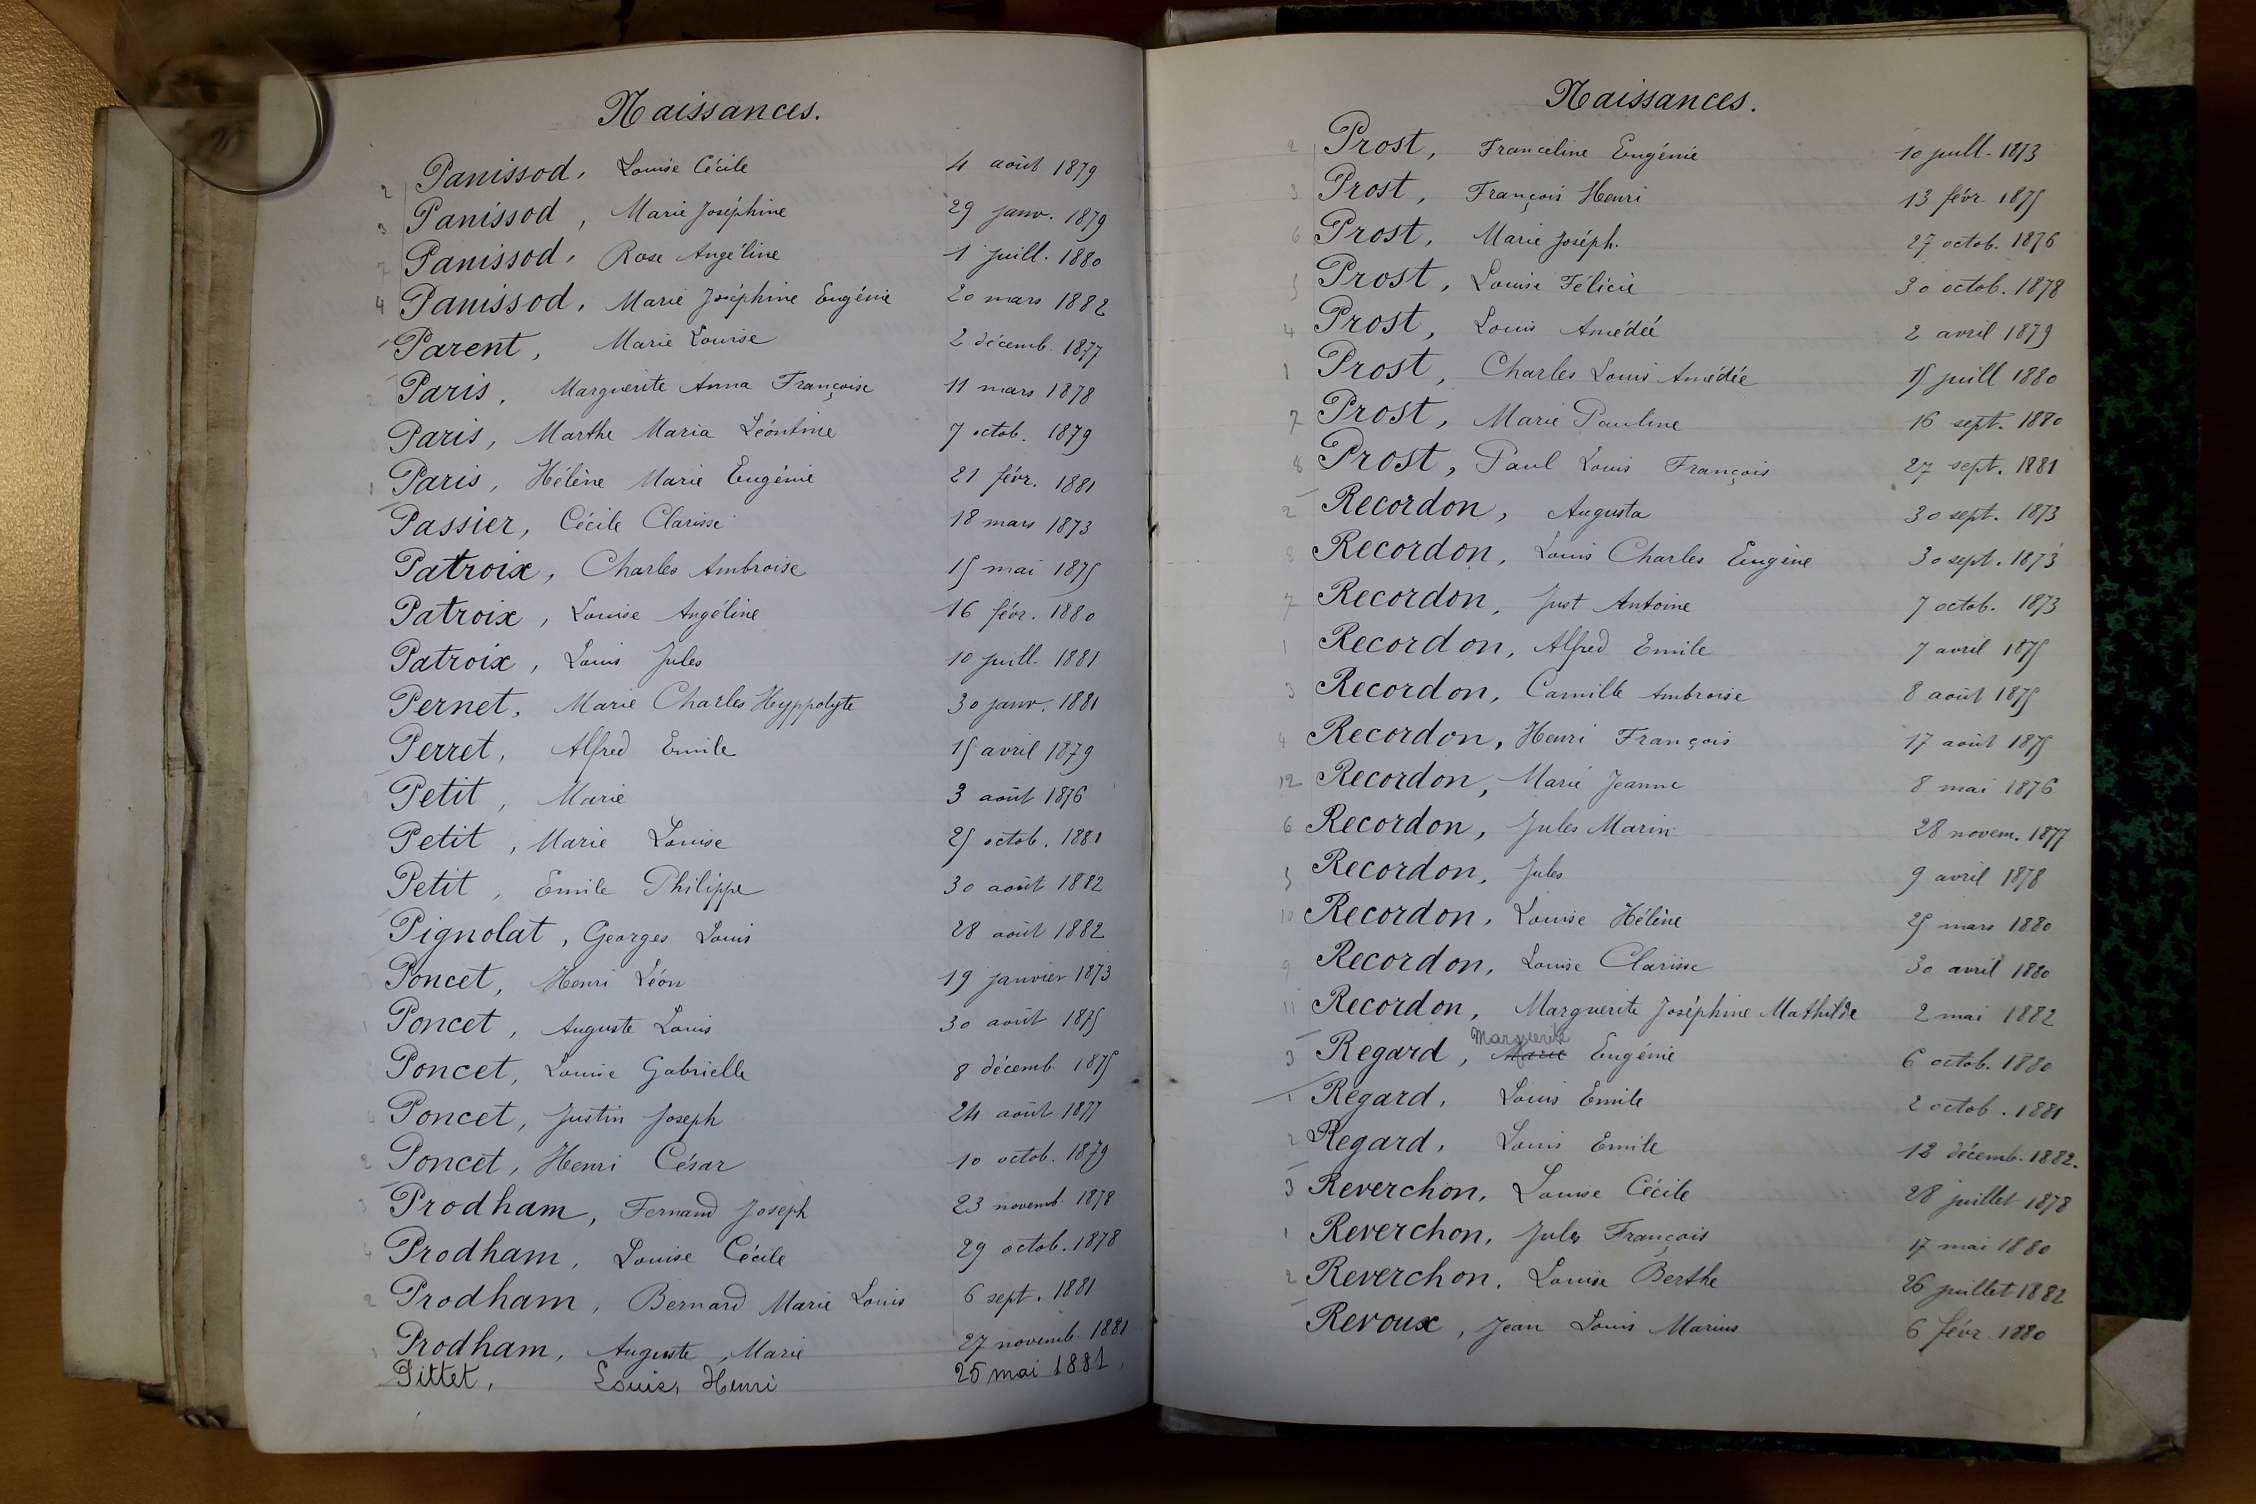 Naissances.
2 Panissod, Louise Cécile 4 août 1879
3 Panissod, Marie Joséphine 29 janv. 1879
7 Panissod, Rose Angéline 1 juill. 1880
4 Panissod, Marie Joséphine Eugénie 20 mars 1882
Parent, Marie Louise 2 décemb. 1877
2 Paris, Marguerite Anna Françoise 11 mars 1878
Paris, Marthe Maria Léontine 7 octob. 1879
1 Paris, Hélène Marie Eugénie 21 févr. 1881
Passier, Cécile Clarisse 18 mars 1873
Patroix, Charles Ambroise 15 mai 1875
Patroix, Louise Angéline 16 févr. 1880
Patroix, Louis Jules 10 juill. 1881
Pernet, Marie Charles Hyppolyte 30 janv. 1881
Perret, Alfred Emile 15 avril 1879
Petit, Marie 3 août 1876
Petit, Marie Louise 25 octob. 1881
Petit, Emile Philippe 30 août 1882
Pignolat, Georges Louis 28 août 1882
3 Poncet, Henri Léon 19 janvier 1873
1 Poncet, Auguste Louis 30 août 1875
Poncet, Louise Gabrielle 8 décemb. 1875
4 Poncet, Justin Joseph 24 août 1877
2 Poncet, Henri César 10 octob. 1879
3 Prodham, Fernand Joseph 23 novemb. 1878
4 Prodham, Louise Cécile 29 octob. 1878
2 Prodham, Bernard Marie Louis 6 sept. 1881
1 Prodham, Auguste, Marie 27 novemb. 1881
Pittet, Louis, Henri 25 mai 1881.
Naissances.
2 Prost, Franceline Eugénie 10 juill. 1873
3 Prost, François Henri 13 févr. 1875
6 Prost, Marie Joséph. 27 octob. 1876
5 Prost, Louise Félicie 30 octob. 1878
4 Prost, Louis Amédée 2 avril 1879
1 Prost, Charles Louis Amédée 15 juill 1880
7 Prost, Marie Pauline 16 sept. 1880
8 Prost, Paul Louis François 27 sept. 1881
2 Recordon, Augusta 30 sept. 1873
8 Recordon, Louis Charles Eugène 30 sept. 1873
7 Recordon, Just Antoine 7 octob. 1873
1 Recordon, Alfred Emile 7 avril 1875
3 Recordon, Camille Ambroise 8 août 1875
4 Recordon, Henri François 17 août 1875
12 Recordon, Marie Jeanne 8 mai 1876
6 Recordon, Jules Marin 28 novem. 1877
5 Recordon, Jules 9 avril 1878
10 Recordon, Louise Hélène 25 mars 1880
9 Recordon, Louise Clarisse 30 avril 1880
11 Recordon, Marguerite Joséphine Mathilde 2 mai 1882
Marguerite
3 Regard, Marie Eugénie 6 octob. 1880
1 Regard, Louis Emile 2 octob. 1881
2 Regard, Louis Emile 12 décemb. 1882.
3 Reverchon, Louise Cécile 28 juillet 1878
1 Reverchon, Jules François 17 mai 1880
2 Reverchon, Louise Berthe 26 juillet 1882
Revoux, Jean Louis Marius 6 févr. 1880